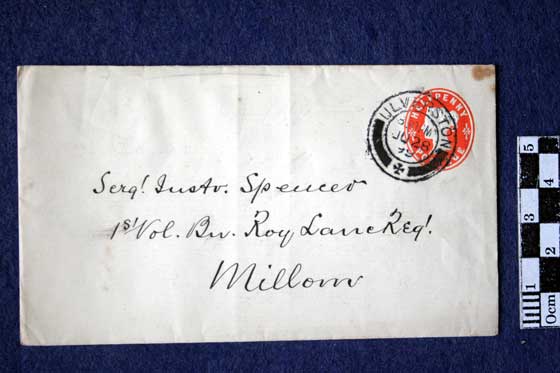 HALFPENNY
ULVERSTON
JU 28
99
Sergt. Instr. Spencer
1st Vol. Bn. Roy Lanc Regt.
Millom
0cm 1 2 3 4 5